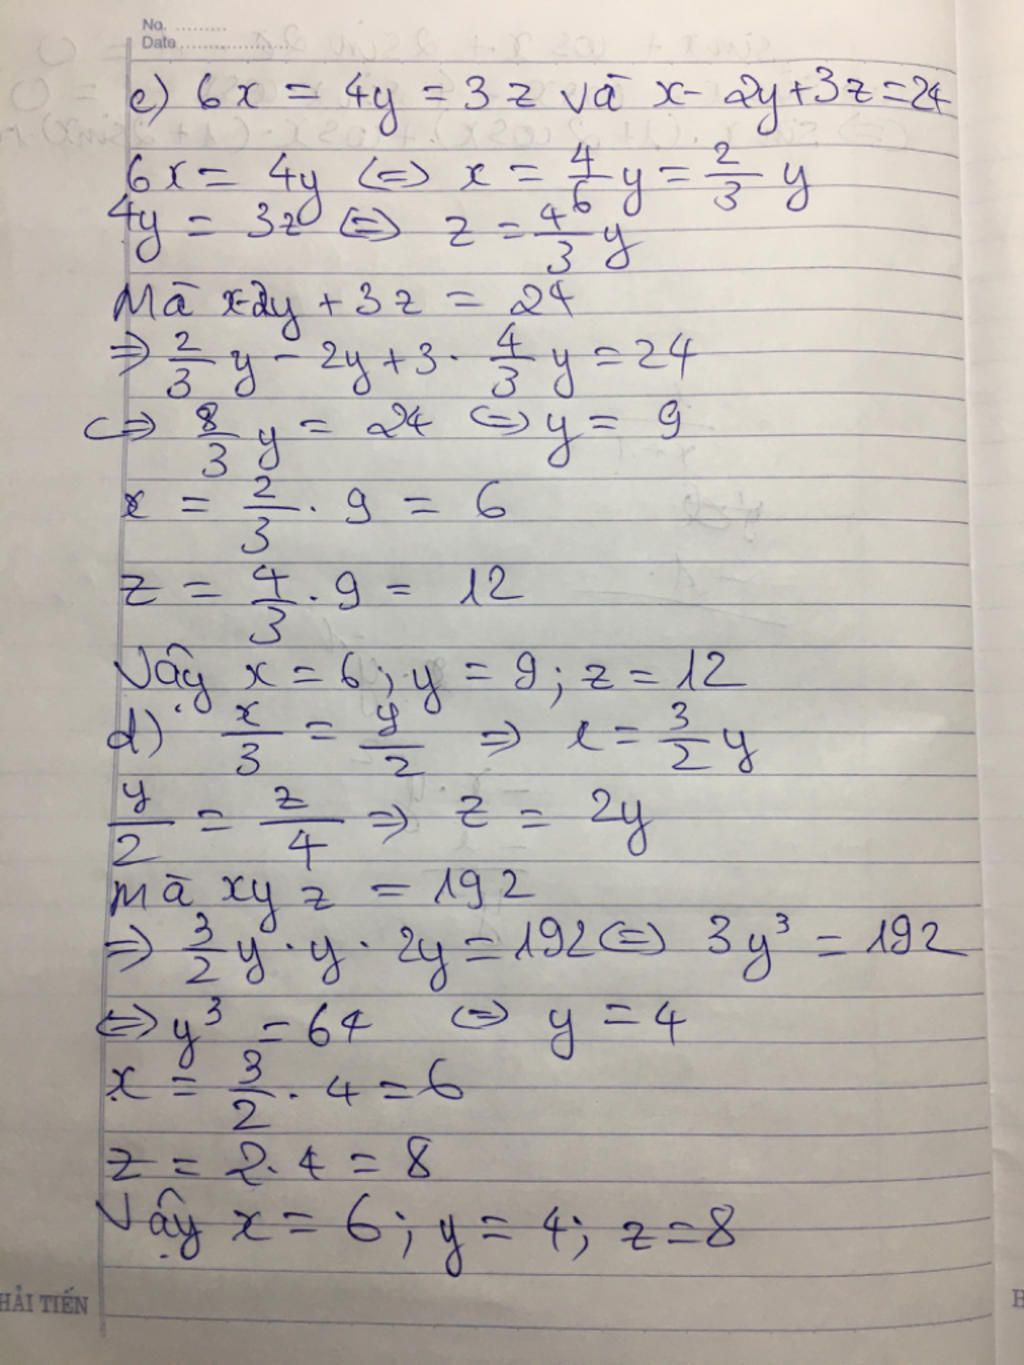 No. ..........
Date ......................
c) 6x = 4y = 3z và x - 2y + 3z = 24
6x = 4y <=> x = 4/6 y = 2/3 y
4y = 3z <=> z = 4/3 y
Mà x-2y + 3z = 24
=> 2/3 y - 2y + 3 . 4/3 y = 24
<=> 8/3 y = 24 <=> y = 9
x = 2/3 . 9 = 6
z = 4/3 . 9 = 12
Vậy x = 6 ; y = 9 ; z = 12
d) x/3 = y/2 => x = 3/2 y
y/2 = z/4 => z = 2y
Mà xyz = 192
=> 3/2 y . y . 2y = 192 <=> 3y³ = 192
<=> y³ = 64 <=> y = 4
x = 3/2 . 4 = 6
z = 2.4 = 8
Vậy x = 6 ; y = 4 ; z = 8
HẢI TIẾN